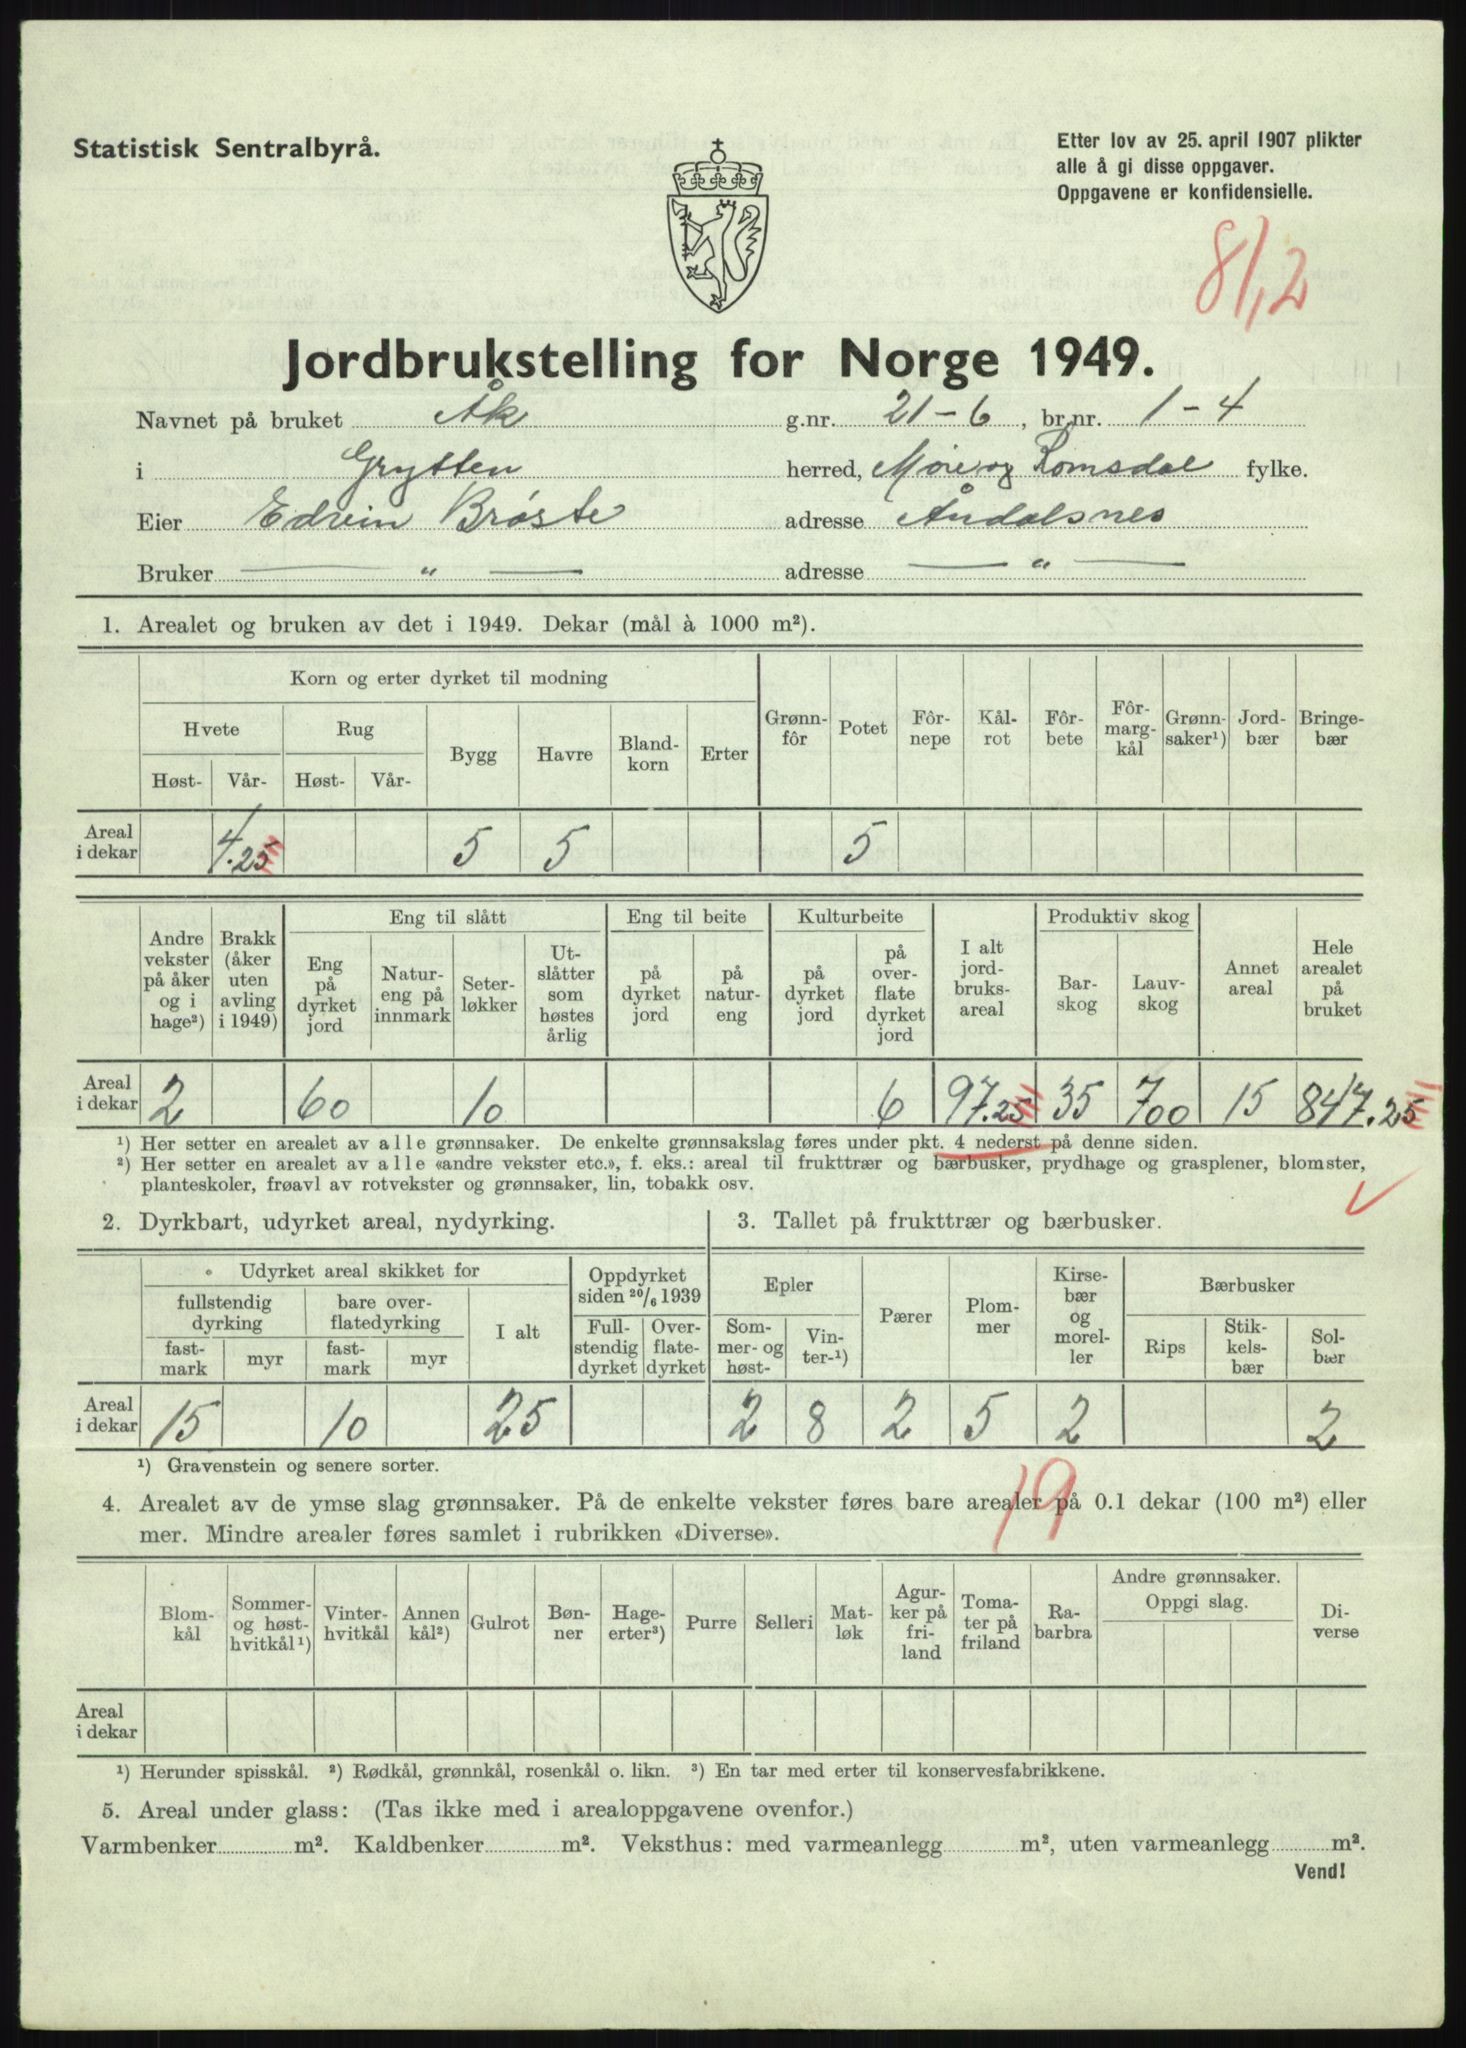 Statistisk Sentralbyrå.
Etter lov av 25. april 1907 plikter
alle å gi disse oppgaver.
Oppgavene er konfidensielle.
81,2
Jordbrukstelling for Norge 1949.
Navnet på bruket Åk g.nr. 21-6, br.nr. 1-4
i Grytten herred, Møre og Romsdal fylke.
Eier Edvin Brøste adresse Åndalsnes
Bruker — „ — adresse — „ —
1. Arealet og bruken av det i 1949. Dekar (mål à 1000 m²).
Korn og erter dyrket til modning
Hvete Rug
Høst- Vår- Høst- Vår- Bygg Havre Bland-korn Erter Grønn-fôr Potet Fôr-nepe Kål-rot Fôr-bete Fôr-marg-kål Grønn-saker¹) Jord-bær Bringe-bær
Areal i dekar 4.25 5 5 5
Eng til slått Eng til beite Kulturbeite Produktiv skog
Andre vekster på åker og i hage²) Brakk (åker uten avling i 1949) Eng på dyrket jord Natur-eng på innmark Seter-løkker Ut-slåtter som høstes årlig på dyrket jord på natur-eng på dyrket jord på over-flate dyrket jord I alt jord-bruks-areal Bar-skog Lauv-skog Annet areal Hele arealet på bruket
Areal i dekar 2 60 10 6 97.25 35 700 15 847.25
¹) Her setter en arealet av alle grønnsaker. De enkelte grønnsakslag føres under pkt. 4 nederst på denne siden.
²) Her setter en arealet av alle «andre vekster etc.», f. eks.: areal til frukttrær og bærbusker, prydhage og grasplener, blomster,
planteskoler, frøavl av rotvekster og grønnsaker, lin, tobakk osv.
2. Dyrkbart, udyrket areal, nydyrking.
Udyrket areal skikket for
fullstendig dyrking bare over-flatedyrking I alt Oppdyrket siden 20/6 1939
fast-mark myr fast-mark myr Full-stendig dyrket Over-flate-dyrket
Areal i dekar 15 10 25
3. Tallet på frukttrær og bærbusker.
Epler Pærer Plom-mer Kirse-bær og morel-ler Bærbusker
Som-mer- og høst- Vin-ter-¹) Rips Stik-kels-bær Sol-bær
2 8 2 5 2 2
¹) Gravenstein og senere sorter.
19
4. Arealet av de ymse slag grønnsaker. På de enkelte vekster føres bare arealer på 0.1 dekar (100 m²) eller
mer. Mindre arealer føres samlet i rubrikken «Diverse».
Blom-kål Sommer- og høst-hvitkål¹) Vinter-hvitkål Annen kål²) Gulrot Bøn-ner Hage-erter³) Purre Selleri Mat-løk Agur-ker på fri-land Toma-ter på friland Ra-barbra Andre grønnsaker. Oppgi slag. Di-verse
Areal i dekar
¹) Herunder spisskål. ²) Rødkål, grønnkål, rosenkål o. likn. ³) En tar med erter til konservesfabrikkene.
5. Areal under glass: (Tas ikke med i arealoppgavene ovenfor.)
Varmbenker m². Kaldbenker m². Veksthus: med varmeanlegg m², uten varmeanlegg m².
Vend!